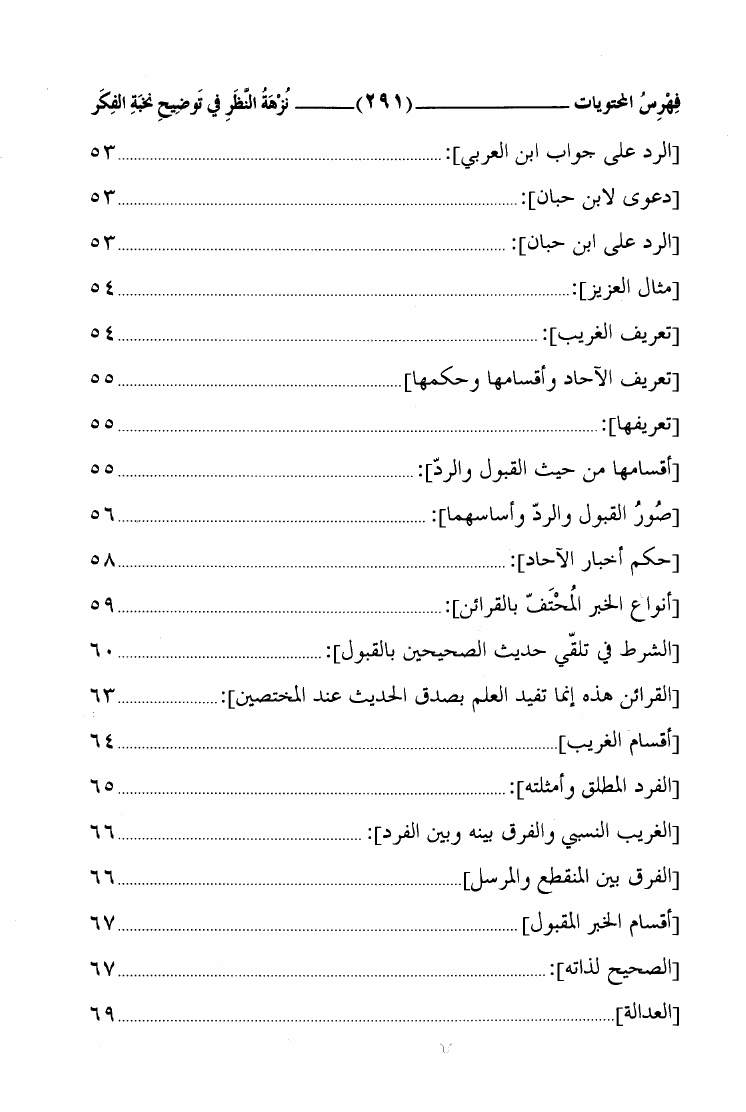 فِهْرِسُ المحتويات ــــــــــــــــ (٢٩١) ــــــــــــــــ نُزْهَةُ النَّظَرِ في تَوضِيحِ نخبَةِ الفِكَر
[الرد على جواب ابن العربي]: ........ ٥٣
[دعوى لابن حبان]: ........ ٥٣
[الرد على ابن حبان]: ........ ٥٣
[مثال العزيز]: ........ ٥٤
[تعريف الغريب]: ........ ٥٤
[تعريف الآحاد وأقسامها وحكمها] ........ ٥٥
[تعريفها]: ........ ٥٥
[أقسامها من حيث القبول والردّ]: ........ ٥٥
[صُورُ القبول والردّ وأساسهما]: ........ ٥٦
[حكم أخبار الآحاد]: ........ ٥٨
[أنواع الخبر المُحْتَفّ بالقرائن]: ........ ٥٩
[الشرط في تلقّي حديث الصحيحين بالقبول]: ........ ٦٠
[القرائن هذه إنما تفيد العلم بصدق الحديث عند المختصين]: ........ ٦٣
[أقسام الغريب] ........ ٦٤
[الفرد المطلق وأمثلته]: ........ ٦٥
[الغريب النسبي والفرق بينه وبين الفرد]: ........ ٦٦
[الفرق بين المنقطع والمرسل] ........ ٦٦
[أقسام الخبر المقبول] ........ ٦٧
[الصحيح لذاته]: ........ ٦٧
[العدالة] ........ ٦٩